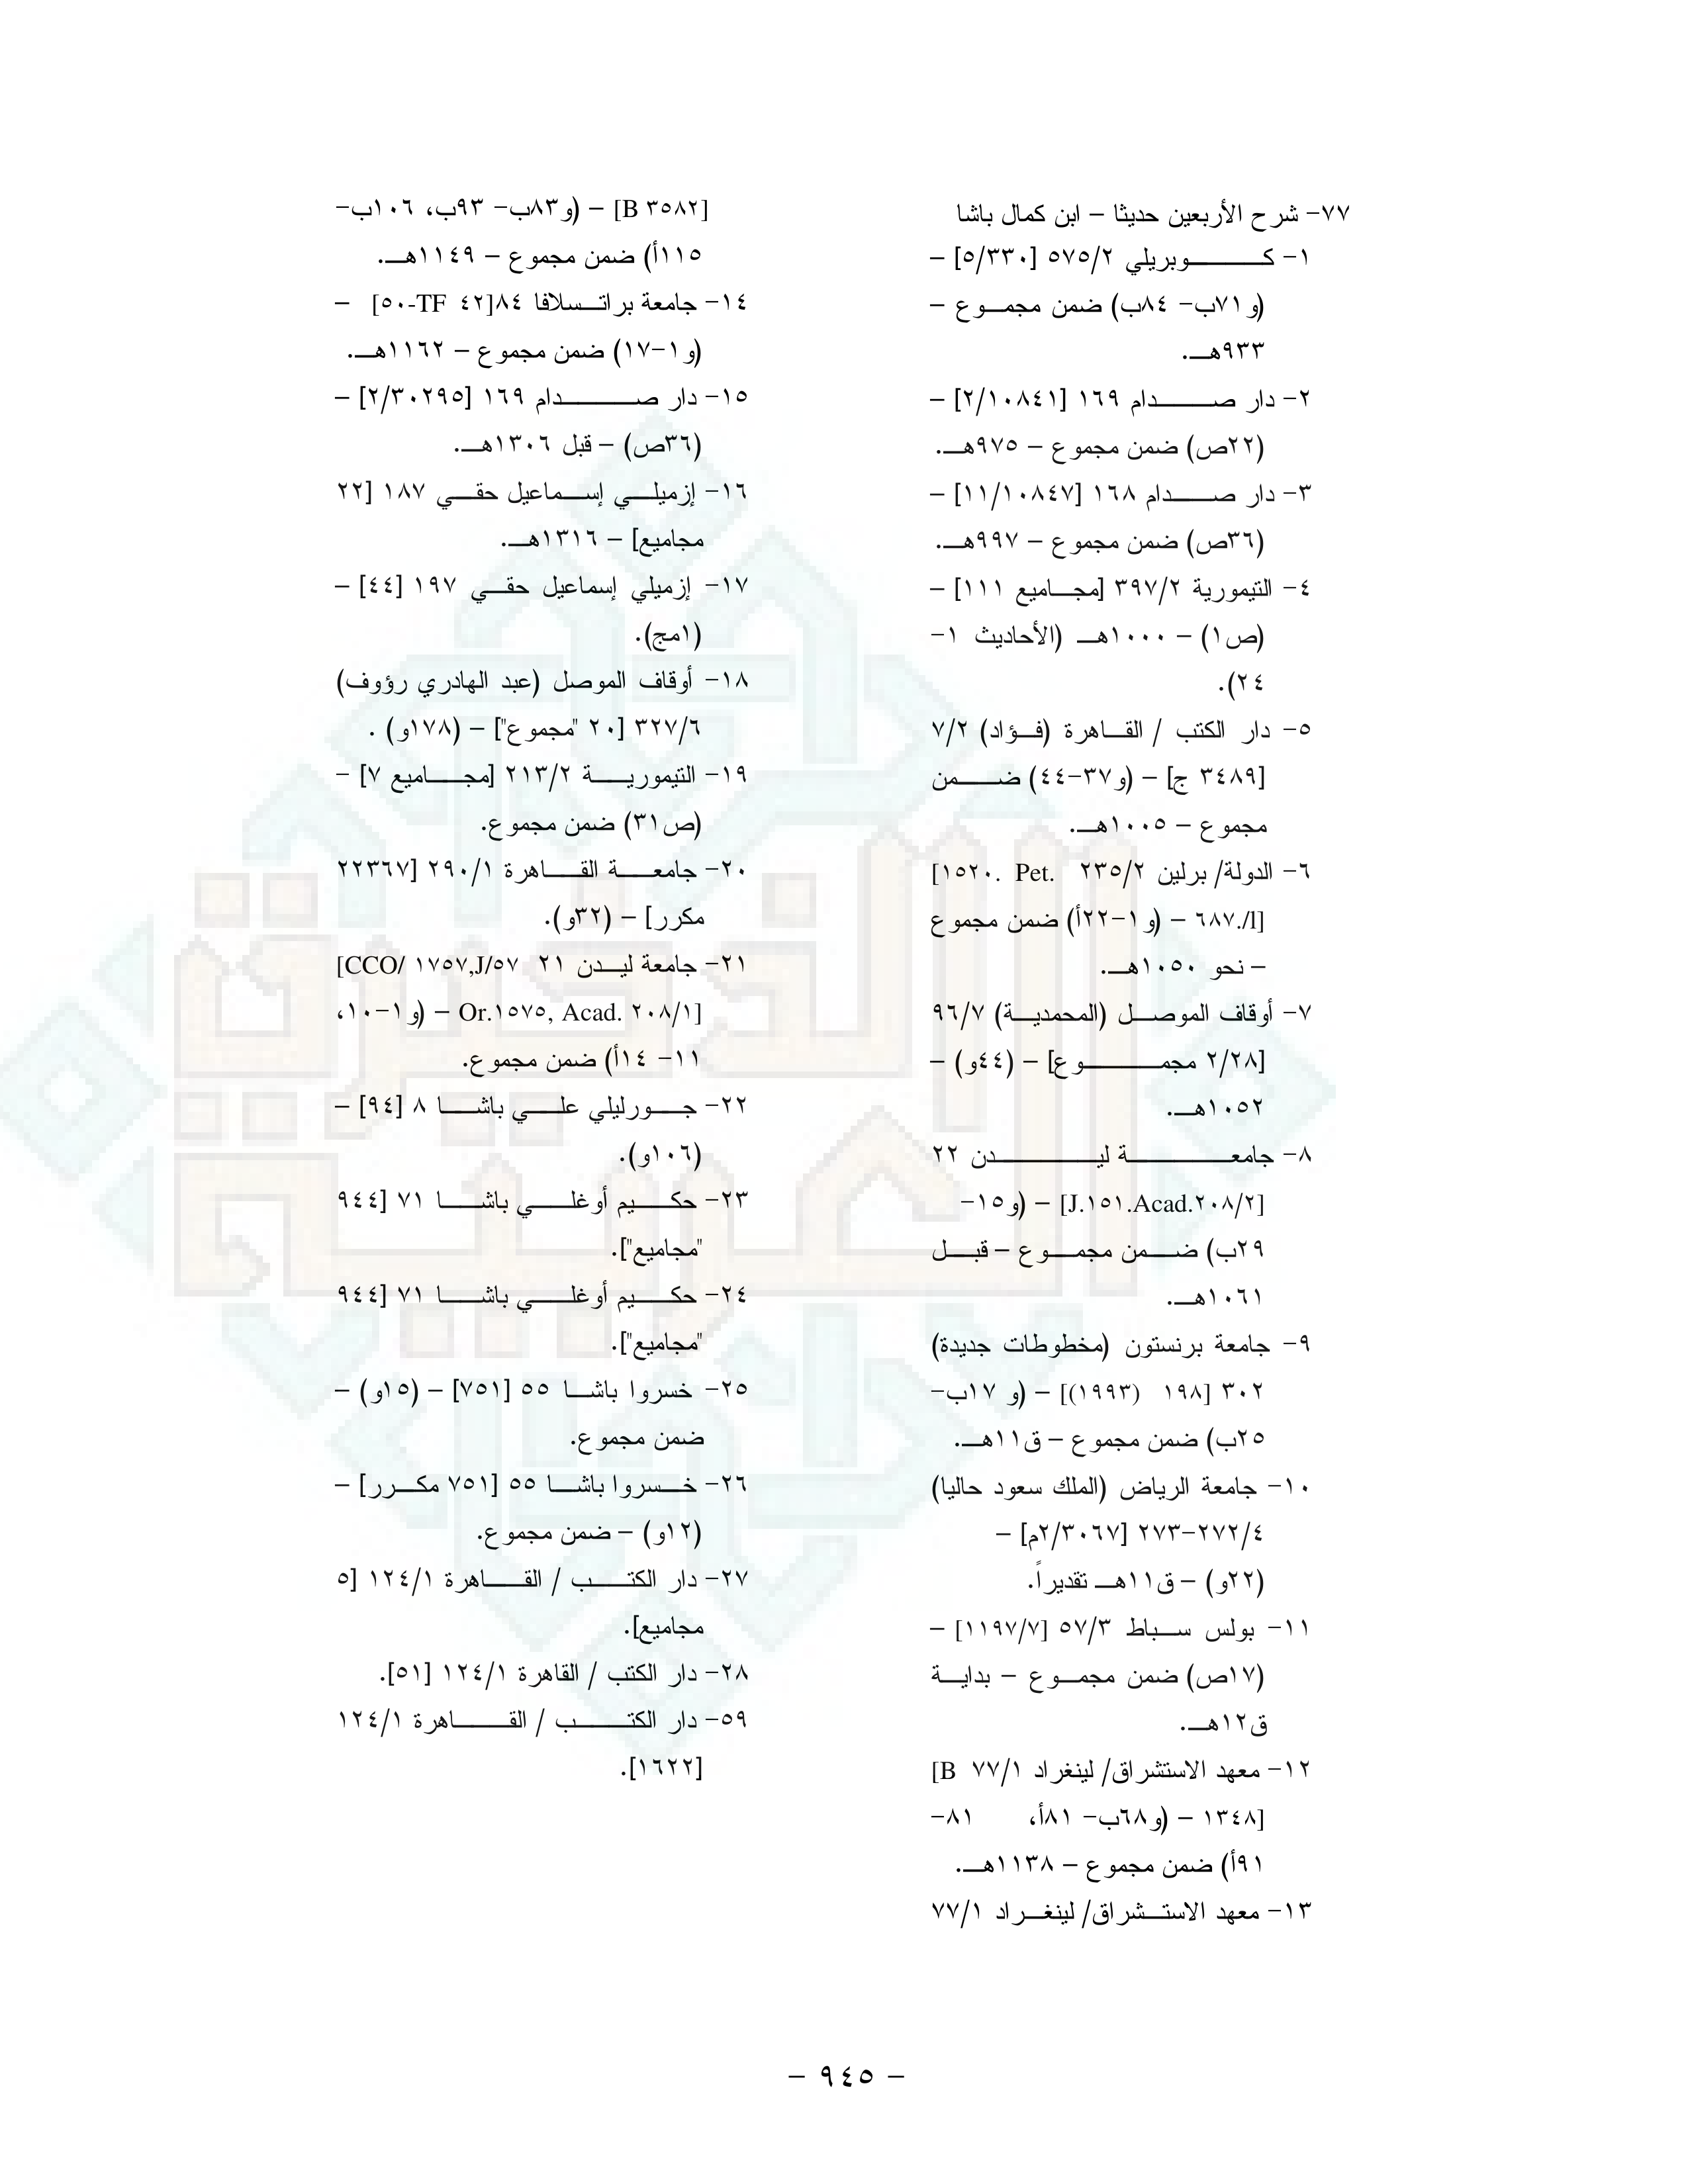 ٧٧- شرح الأربعين حديثا – ابن كمال باشا
١- كوبريلي ٥٧٥/٢ [٥/٣٣٠] –
(و٧١ب- ٨٤ب) ضمن مجموع –
٩٣٣هـ.
٢- دار صدام ١٦٩ [٢/١٠٨٤١] –
(٢٢ص) ضمن مجموع – ٩٧٥هـ.
٣- دار صدام ١٦٨ [١١/١٠٨٤٧] –
(٣٦ص) ضمن مجموع – ٩٩٧هـ.
٤- التيمورية ٣٩٧/٢ [مجاميع ١١١] –
(ص١) – ١٠٠٠هـ (الأحاديث ١-
٢٤).
٥- دار الكتب / القاهرة (فؤاد) ٧/٢
[٣٤٨٩ ج] – (و٣٧-٤٤) ضمن
مجموع – ١٠٠٥هـ.
٦- الدولة/ برلين ٢٣٥/٢ [١٥٢٠. Pet.
l/.٦٨٧] – (و١-٢٢أ) ضمن مجموع
– نحو ١٠٥٠هـ.
٧- أوقاف الموصل (المحمدية) ٩٦/٧
[٢/٢٨ مجموع] – (٤٤و) –
١٠٥٢هـ.
٨- جامعة ليدن ٢٢
[J.١٥١.Acad.٢٠٨/٢] – (و١٥-
٢٩ب) ضمن مجموع – قبل
١٠٦١هـ.
٩- جامعة برنستون (مخطوطات جديدة)
٣٠٢ [١٩٨ (١٩٩٣)] – (و ١٧ب-
٢٥ب) ضمن مجموع – ق١١هـ.
١٠- جامعة الرياض (الملك سعود حاليا)
٢٧٢/٤-٢٧٣ [٢/٣٠٦٧م] –
(٢٢و) – ق١١هـ تقديراً.
١١- بولس سباط ٥٧/٣ [١١٩٧/٧] –
(١٧ص) ضمن مجموع – بداية
ق١٢هـ.
١٢- معهد الاستشراق/ لينغراد ٧٧/١ [B
١٣٤٨] – (و٦٨ب- ٨١أ، ٨١-
٩١أ) ضمن مجموع – ١١٣٨هـ.
١٣- معهد الاستشراق/ لينغراد ٧٧/١
[B ٣٥٨٢] – (و٨٣ب- ٩٣ب، ١٠٦ب-
١١٥أ) ضمن مجموع – ١١٤٩هـ.
١٤- جامعة براتسلافا ٨٤[٤٢ TF-٥٠] –
(و١-١٧) ضمن مجموع – ١١٦٢هـ.
١٥- دار صدام ١٦٩ [٢/٣٠٢٩٥] –
(٣٦ص) – قبل ١٣٠٦هـ.
١٦- إزميلي إسماعيل حقي ١٨٧ [٢٢
مجاميع] – ١٣١٦هـ.
١٧- إزميلي إسماعيل حقي ١٩٧ [٤٤] –
(١مج).
١٨- أوقاف الموصل (عبد الهادري رؤوف)
٣٢٧/٦ [٢٠ "مجموع"] – (١٧٨و) .
١٩- التيمورية ٢١٣/٢ [مجاميع ٧] –
(ص٣١) ضمن مجموع.
٢٠- جامعة القاهرة ٢٩٠/١ [٢٢٣٦٧
مكرر] – (٣٢و).
٢١- جامعة ليدن ٢١ [CCO/ ١٧٥٧,J/٥٧
Or.١٥٧٥, Acad. ٢٠٨/١] – (و١-١٠،
١١- ١٤أ) ضمن مجموع.
٢٢- جورليلي علي باشا ٨ [٩٤] –
(١٠٦و).
٢٣- حكيم أوغلي باشا ٧١ [٩٤٤
"مجاميع"].
٢٤- حكيم أوغلي باشا ٧١ [٩٤٤
"مجاميع"].
٢٥- خسروا باشا ٥٥ [٧٥١] – (١٥و) –
ضمن مجموع.
٢٦- خسروا باشا ٥٥ [٧٥١ مكرر] –
(١٢و) – ضمن مجموع.
٢٧- دار الكتب / القاهرة ١٢٤/١ [٥
مجاميع].
٢٨- دار الكتب / القاهرة ١٢٤/١ [٥١].
٥٩- دار الكتب / القاهرة ١٢٤/١
[١٦٢٢].
– ٩٤٥ –